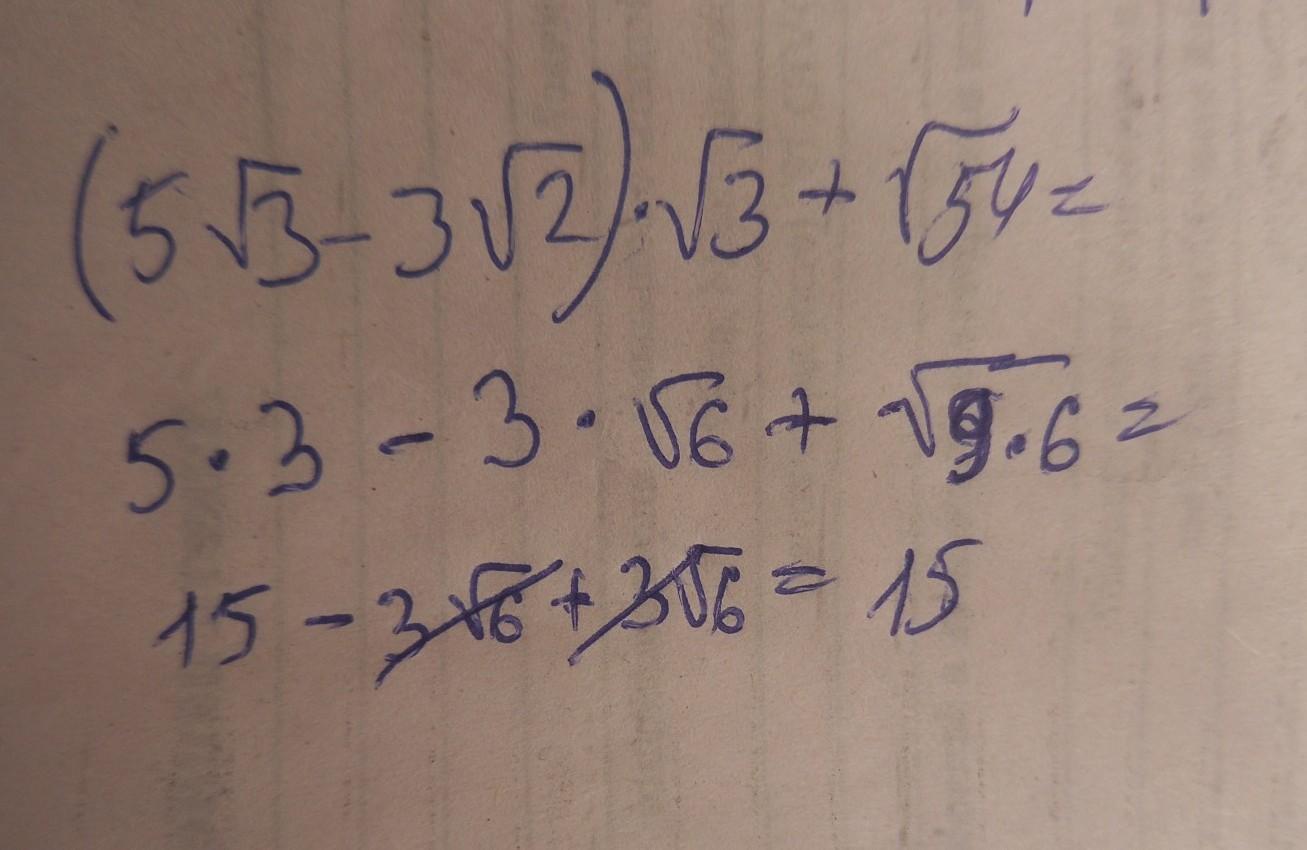 (5√3 - 3√2)·√3 + √54 =
5·3 - 3·√6 + √9·6 =
15 - 3√6 + 3√6 = 15